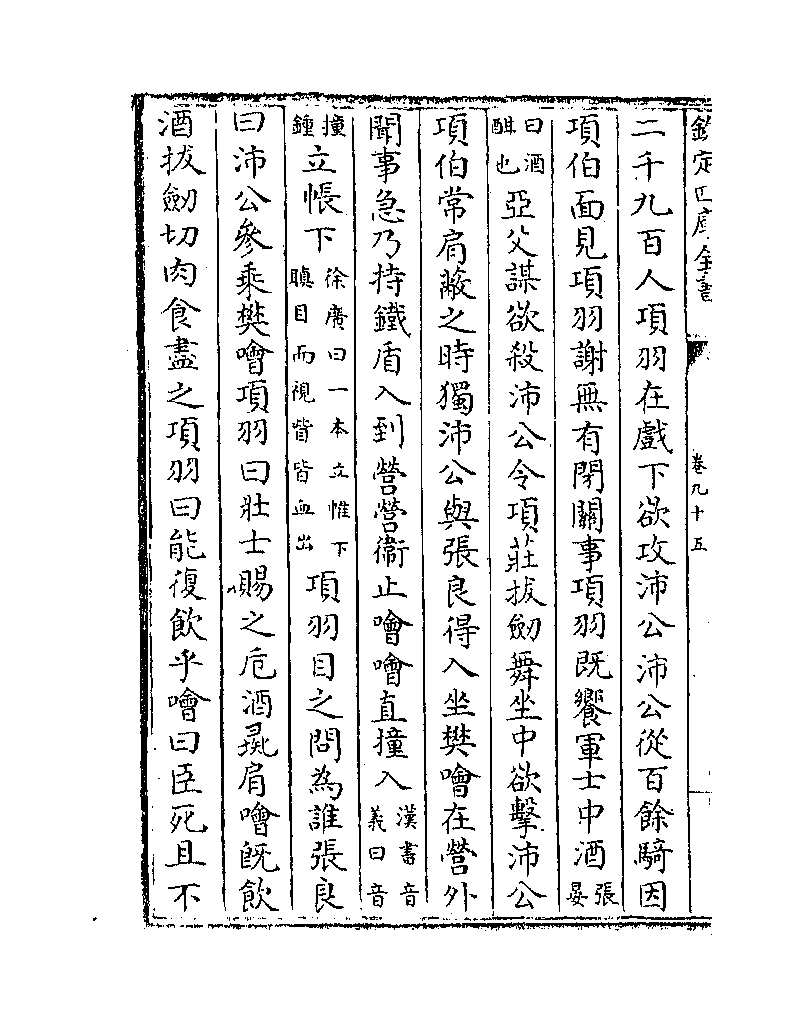 欽定四庫全書
卷九十五
二千九百人項羽在戲下欲攻沛公沛公從百餘騎因
項伯面見項羽謝無有閉關事項羽既饗軍士中酒張晏
曰酒酣也亞父謀欲殺沛公令項莊拔劒舞坐中欲擊沛公
項伯常肩蔽之時獨沛公與張良得入坐樊噲在營外
聞事急乃持鐵盾入到營營衞止噲噲直撞入漢書音義曰音
撞鍾立帳下徐廣曰一本立帷下瞋目而視眥皆血出項羽目之問為誰張良
曰沛公參乘樊噲項羽曰壯士賜之巵酒彘肩噲既飲
酒拔劒切肉食盡之項羽曰能復飲乎噲曰臣死且不